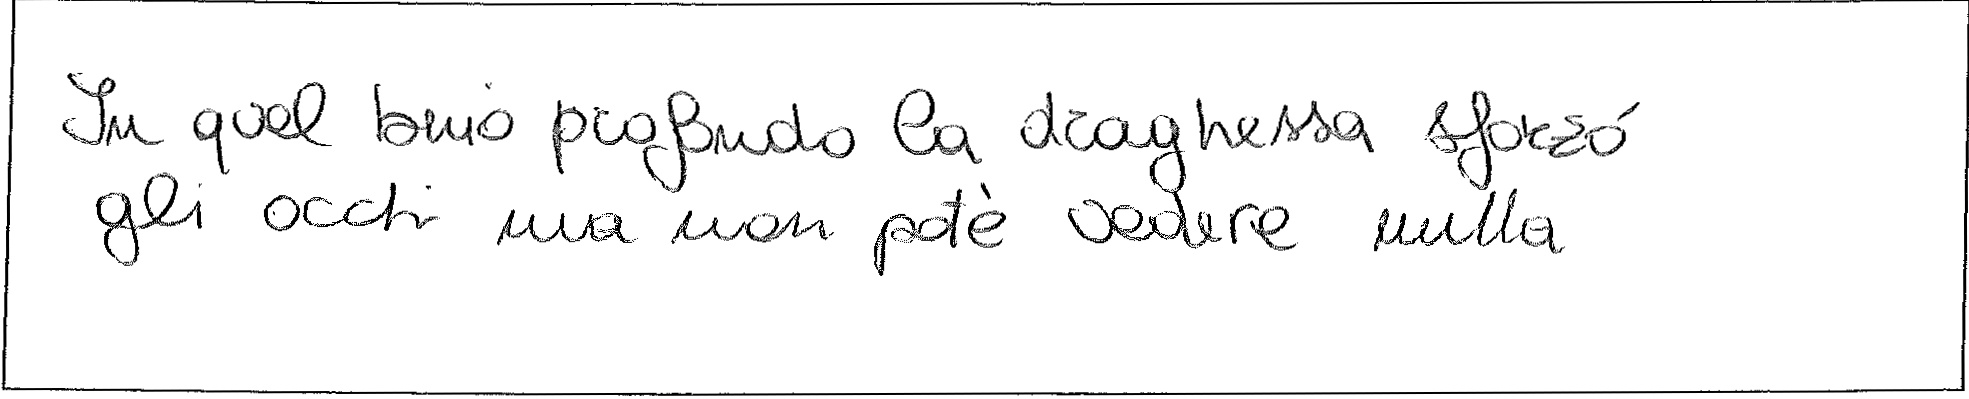 In quel buio profondo la draghessa sforzó
gli occhi ma non potè vedere nulla